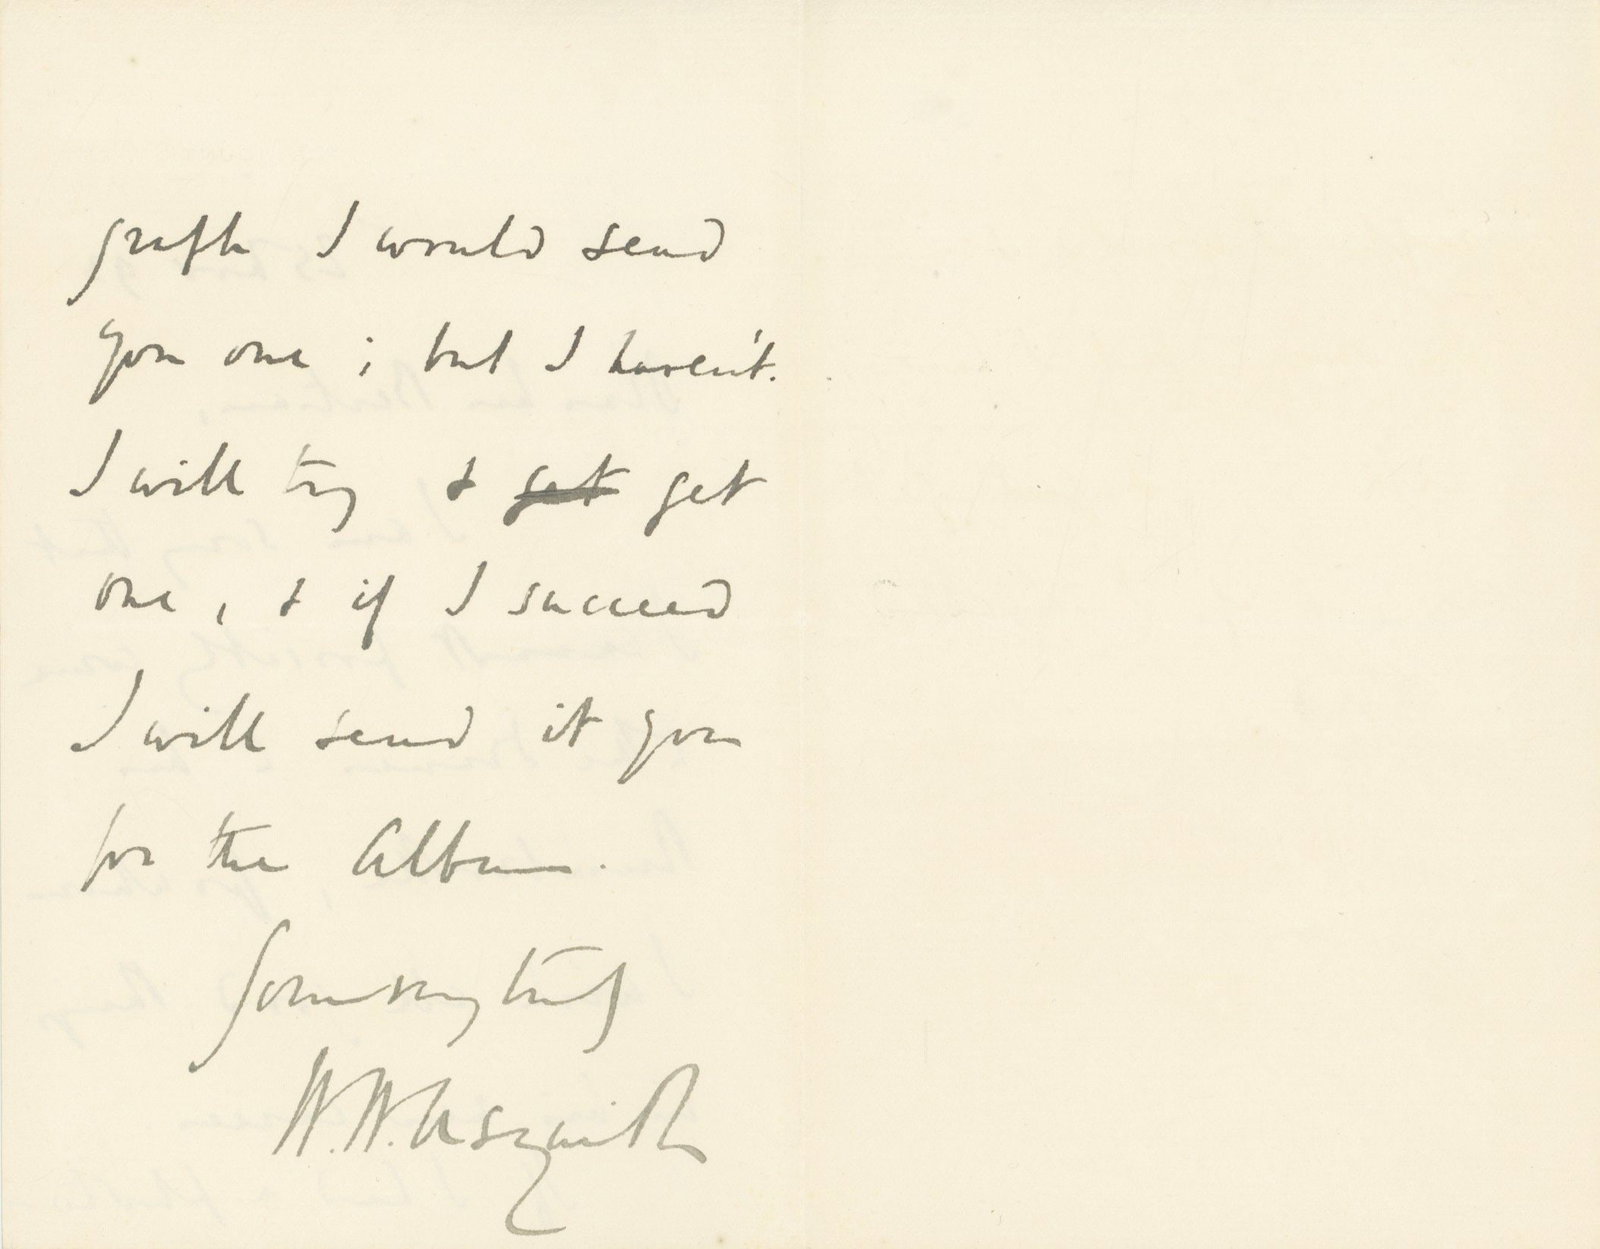 graph I would send
you one ; but I haven't.
I will try & get get
one, & if I succeed
I will send it you
for the Album.
Yours very truly
H. H. Asquith